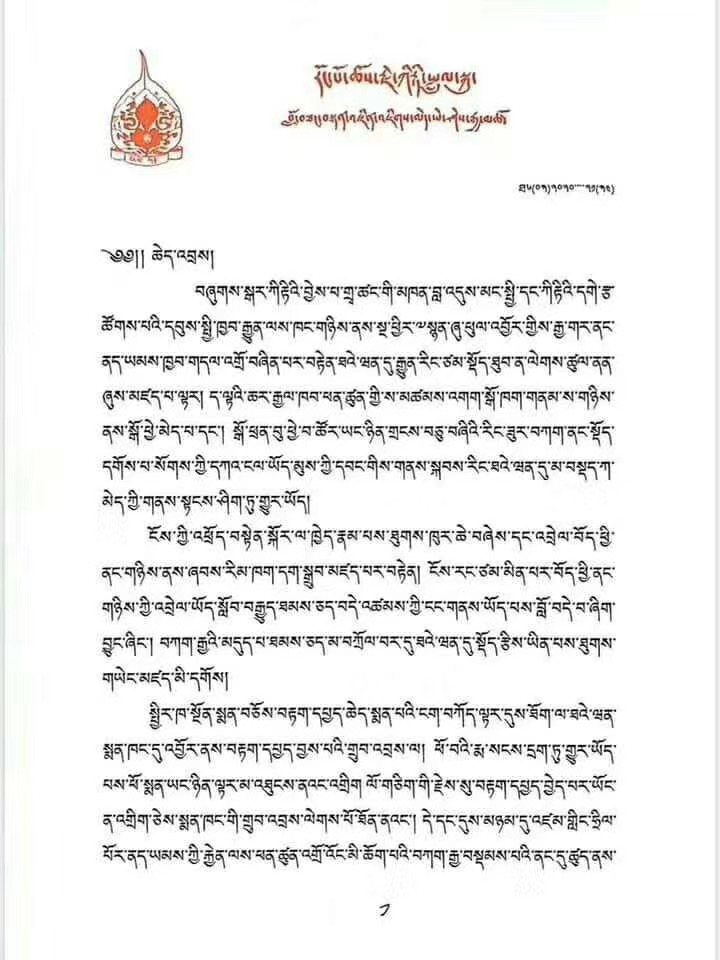 ༄༅།། ཆེད་འབྲས།
བཞུགས་སྒར་ཀིརྟིའི་བྱེས་པ་གྲྭ་ཚང་གི་མཁན་བླ་འདུས་མང་སྤྱི་དང་ཀིརྟིའི་དགེ་རྩ་
ཚོགས་པའི་དབུས་སྤྱི་ཁྱབ་རྒྱུན་ལས་ཁང་གཉིས་ནས་སྔ་ཕྱིར་༧སྙན་ཞུ་ཕུལ་འབྱོར་གྱིས་རྒྱ་གར་ནང་
ནད་ཡམས་ཁྱབ་གདལ་འགྲོ་བཞིན་པར་བརྟེན་ཐའེ་ཝན་དུ་རྒྱུན་རིང་ཙམ་སྡོད་ཐུབ་ན་ལེགས་ཚུལ་ནན་
ཞུས་མཛད་པ་ལྟར། ད་ལྟའི་ཆར་རྒྱལ་ཁབ་ཕན་ཚུན་གྱི་ས་མཚམས་འགག་སྒོ་ཁག་གནམ་ས་གཉིས་
ནས་སྒོ་ཕྱེ་མེད་པ་དང་། སྒོ་ཕྲན་བུ་ཕྱེ་བ་ཚོར་ཡང་ཉིན་གྲངས་བཅུ་བཞིའི་རིང་ཟུར་བཀག་ནང་སྡོད་
དགོས་པ་སོགས་ཀྱི་དཀའ་ངལ་ཡོད་མུས་ཀྱི་དབང་གིས་གནས་སྐབས་རིང་ཐའེ་ཝན་དུ་མ་བསྡད་ཀ་
མེད་ཀྱི་གནས་སྟངས་ཤིག་ཏུ་གྱུར་ཡོད།
ངོས་ཀྱི་འཕྲོད་བསྟེན་སྐོར་ལ་ཁྱེད་རྣམ་པས་ཐུགས་ཁུར་ཆེ་བཞེས་དང་འབྲེལ་བོད་ཕྱི་
ནང་གཉིས་ནས་ཞབས་རིམ་ཁག་དག་སྒྲུབ་མཛད་པར་བརྟེན། ངོས་རང་ཙམ་མིན་པར་བོད་ཕྱི་ནང་
གཉིས་ཀྱི་འབྲེལ་ཡོད་སློབ་བརྒྱུད་ཐམས་ཅད་བདེ་འཚམས་ཀྱི་ངང་གནས་ཡོད་པས་བློ་བདེ་བ་ཞིག་
བྱུང་ཞིང་། བཀག་རྒྱའི་མདུད་པ་ཐམས་ཅད་མ་བཀྲོལ་བར་དུ་ཐའེ་ཝན་དུ་སྡོད་རྩིས་ཡིན་པས་ཐུགས་
གཡེང་མཛད་མི་དགོས།
སྤྱིར་ཁ་སྔོན་སྨན་བཅོས་བརྟག་དཔྱད་ཆེད་སྨན་པའི་ངག་བཀོད་ལྟར་དུས་ཐོག་ལ་ཐའེ་ཝན་
སྨན་ཁང་དུ་འབྱོར་ནས་བརྟག་དཔྱད་བྱས་པའི་གྲུབ་འབྲས་ལ། ཕོ་བའི་རྨ་སངས་དྲག་ཏུ་གྱུར་ཡོད་
པས་ཕོ་སྨན་ཡང་ཉིན་ལྟར་མ་འཐུངས་ནའང་འགྲིག ལོ་གཅིག་གི་རྗེས་སུ་བརྟག་དཔྱད་བྱེད་པར་ཡོང་
ན་འགྲིག་ཅེས་སྨན་ཁང་གི་གྲུབ་འབྲས་ལེགས་པོ་ཐོན་ནའང་། དེ་དང་དུས་མཉམ་དུ་འཛམ་གླིང་ཧྲིལ་
པོར་ནད་ཡམས་ཀྱི་རྐྱེན་ལས་ཕན་ཚུན་འགྲོ་འོང་མི་ཆོག་པའི་བཀག་རྒྱ་བསྡམས་པའི་ནང་དུ་ཚུད་ནས་
༡